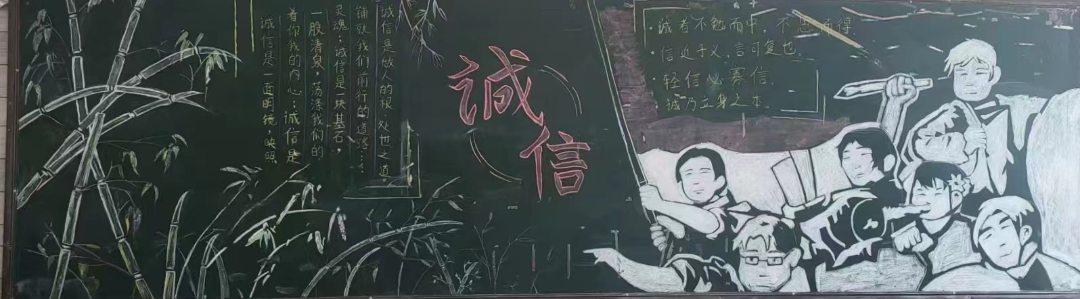 诚信是一面明镜，映照
着你我的内心；诚信是
一股清泉，荡涤我们的
灵魂；诚信是一块基石，
铺就我们前行的道路…
诚信是做人的根，处世之道
誠信
·诚者不勉而中，不思而得
·信近于义，言可复也
·轻信必寡信
·诚乃立身之本.